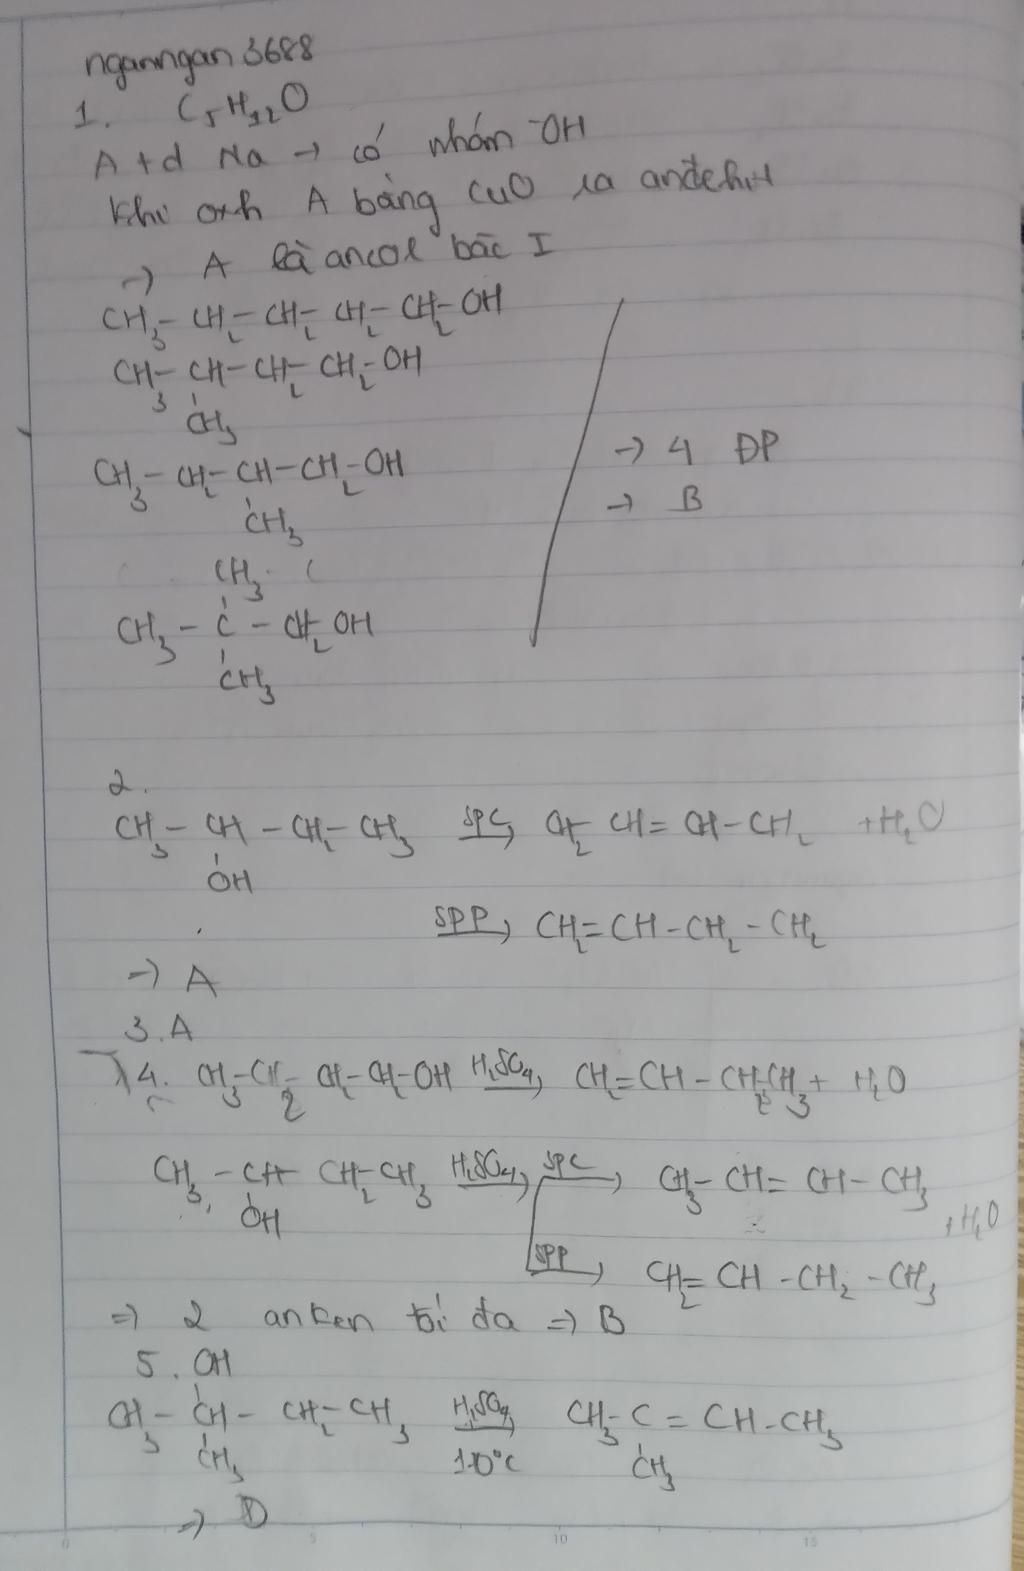 nganngan3688
1. C5H12O
A + d Na → có nhóm -OH
khi oxh A bằng CuO ra anđehit
→ A là ancol bậc I
CH3 - CH2 - CH2 - CH2 - CH2 - OH
CH3 - CH - CH2 - CH2 - OH
CH3
CH3 - CH2 - CH - CH2 - OH
CH3
→ 4 ĐP
→ B
CH3
CH3 - C - CH2 OH
CH3
2.
CH3 - CH - CH2 - CH3 SPC→ CH2 CH = CH - CH2 + H2O
OH
SPP→ CH2 = CH - CH2 - CH2
→ A
3. A
4. CH3 - CH2 - CH - CH2 - OH H2SO4→ CH2 = CH - CH2 CH3 + H2O
CH3 - CH - CH2 - CH3 H2SO4→ SPC→ CH3 - CH = CH - CH3
OH
+ H2O
SPP→ CH2 = CH - CH2 - CH3
⇒ 2 anken tối đa ⇒ B
5. OH
CH3 - CH - CH2 - CH3 H2SO4→ CH3 - C = CH - CH3
CH3 170°C CH3
→ D
0 5 10 15